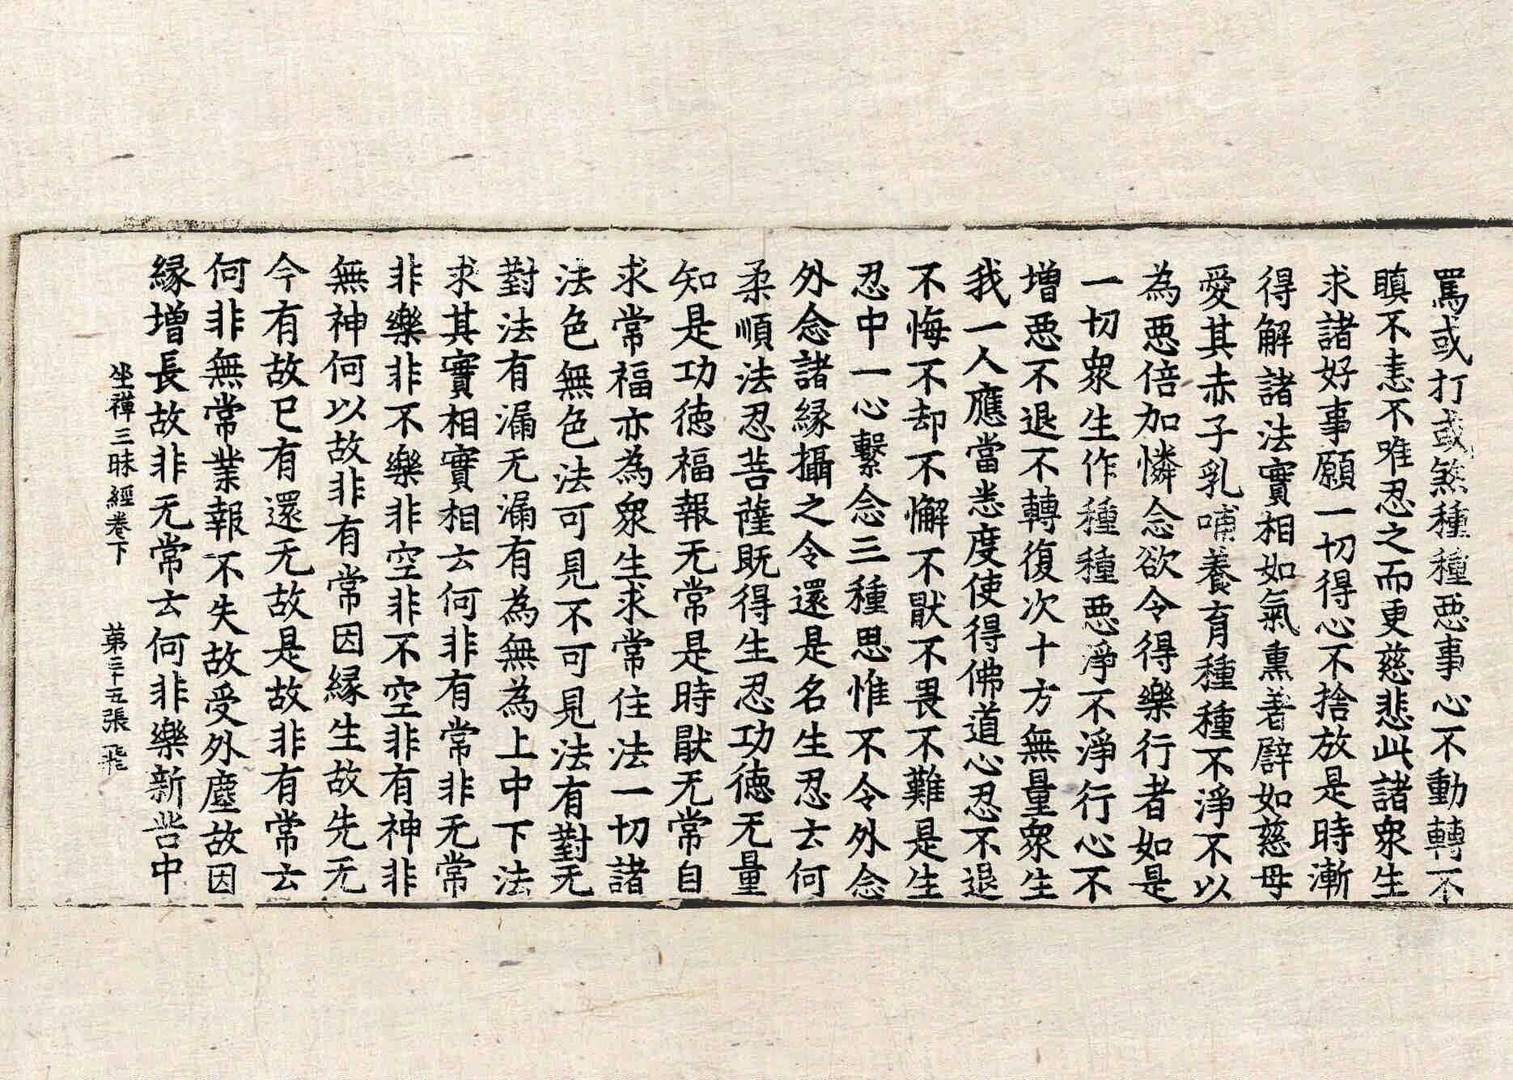 罵或打或煞種種惡事心不動轉不
瞋不恚不唯忍之而更慈悲此諸衆生
求諸好事願一切得心不捨放是時漸
得解諸法實相如氣熏著譬如慈母
愛其赤子乳哺養育種種不淨不以
為惡倍加憐念欲令得樂行者如是
一切衆生作種種惡淨不淨行心不
增惡不退不轉復次十方無量衆生
我一人應當悉度使得佛道心忍不退
不悔不却不懈不猒不畏不難是生
忍中一心繫念三種思惟不令外念
外念諸緣攝之令還是名生忍云何
柔順法忍菩薩既得生忍功德无量
知是功德福報无常是時猒无常自
求常福亦為衆生求常住法一切諸
法色無色法可見不可見法有對无
對法有漏无漏有為無為上中下法
求其實相實相云何非有常非无常
非樂非不樂非空非不空非有神非
無神何以故非有常因緣生故先无
今有故已有還无故是故非有常云
何非無常業報不失故受外塵故因
緣增長故非无常云何非樂新苦中
坐禪三昧經卷下　第三十五張　飛